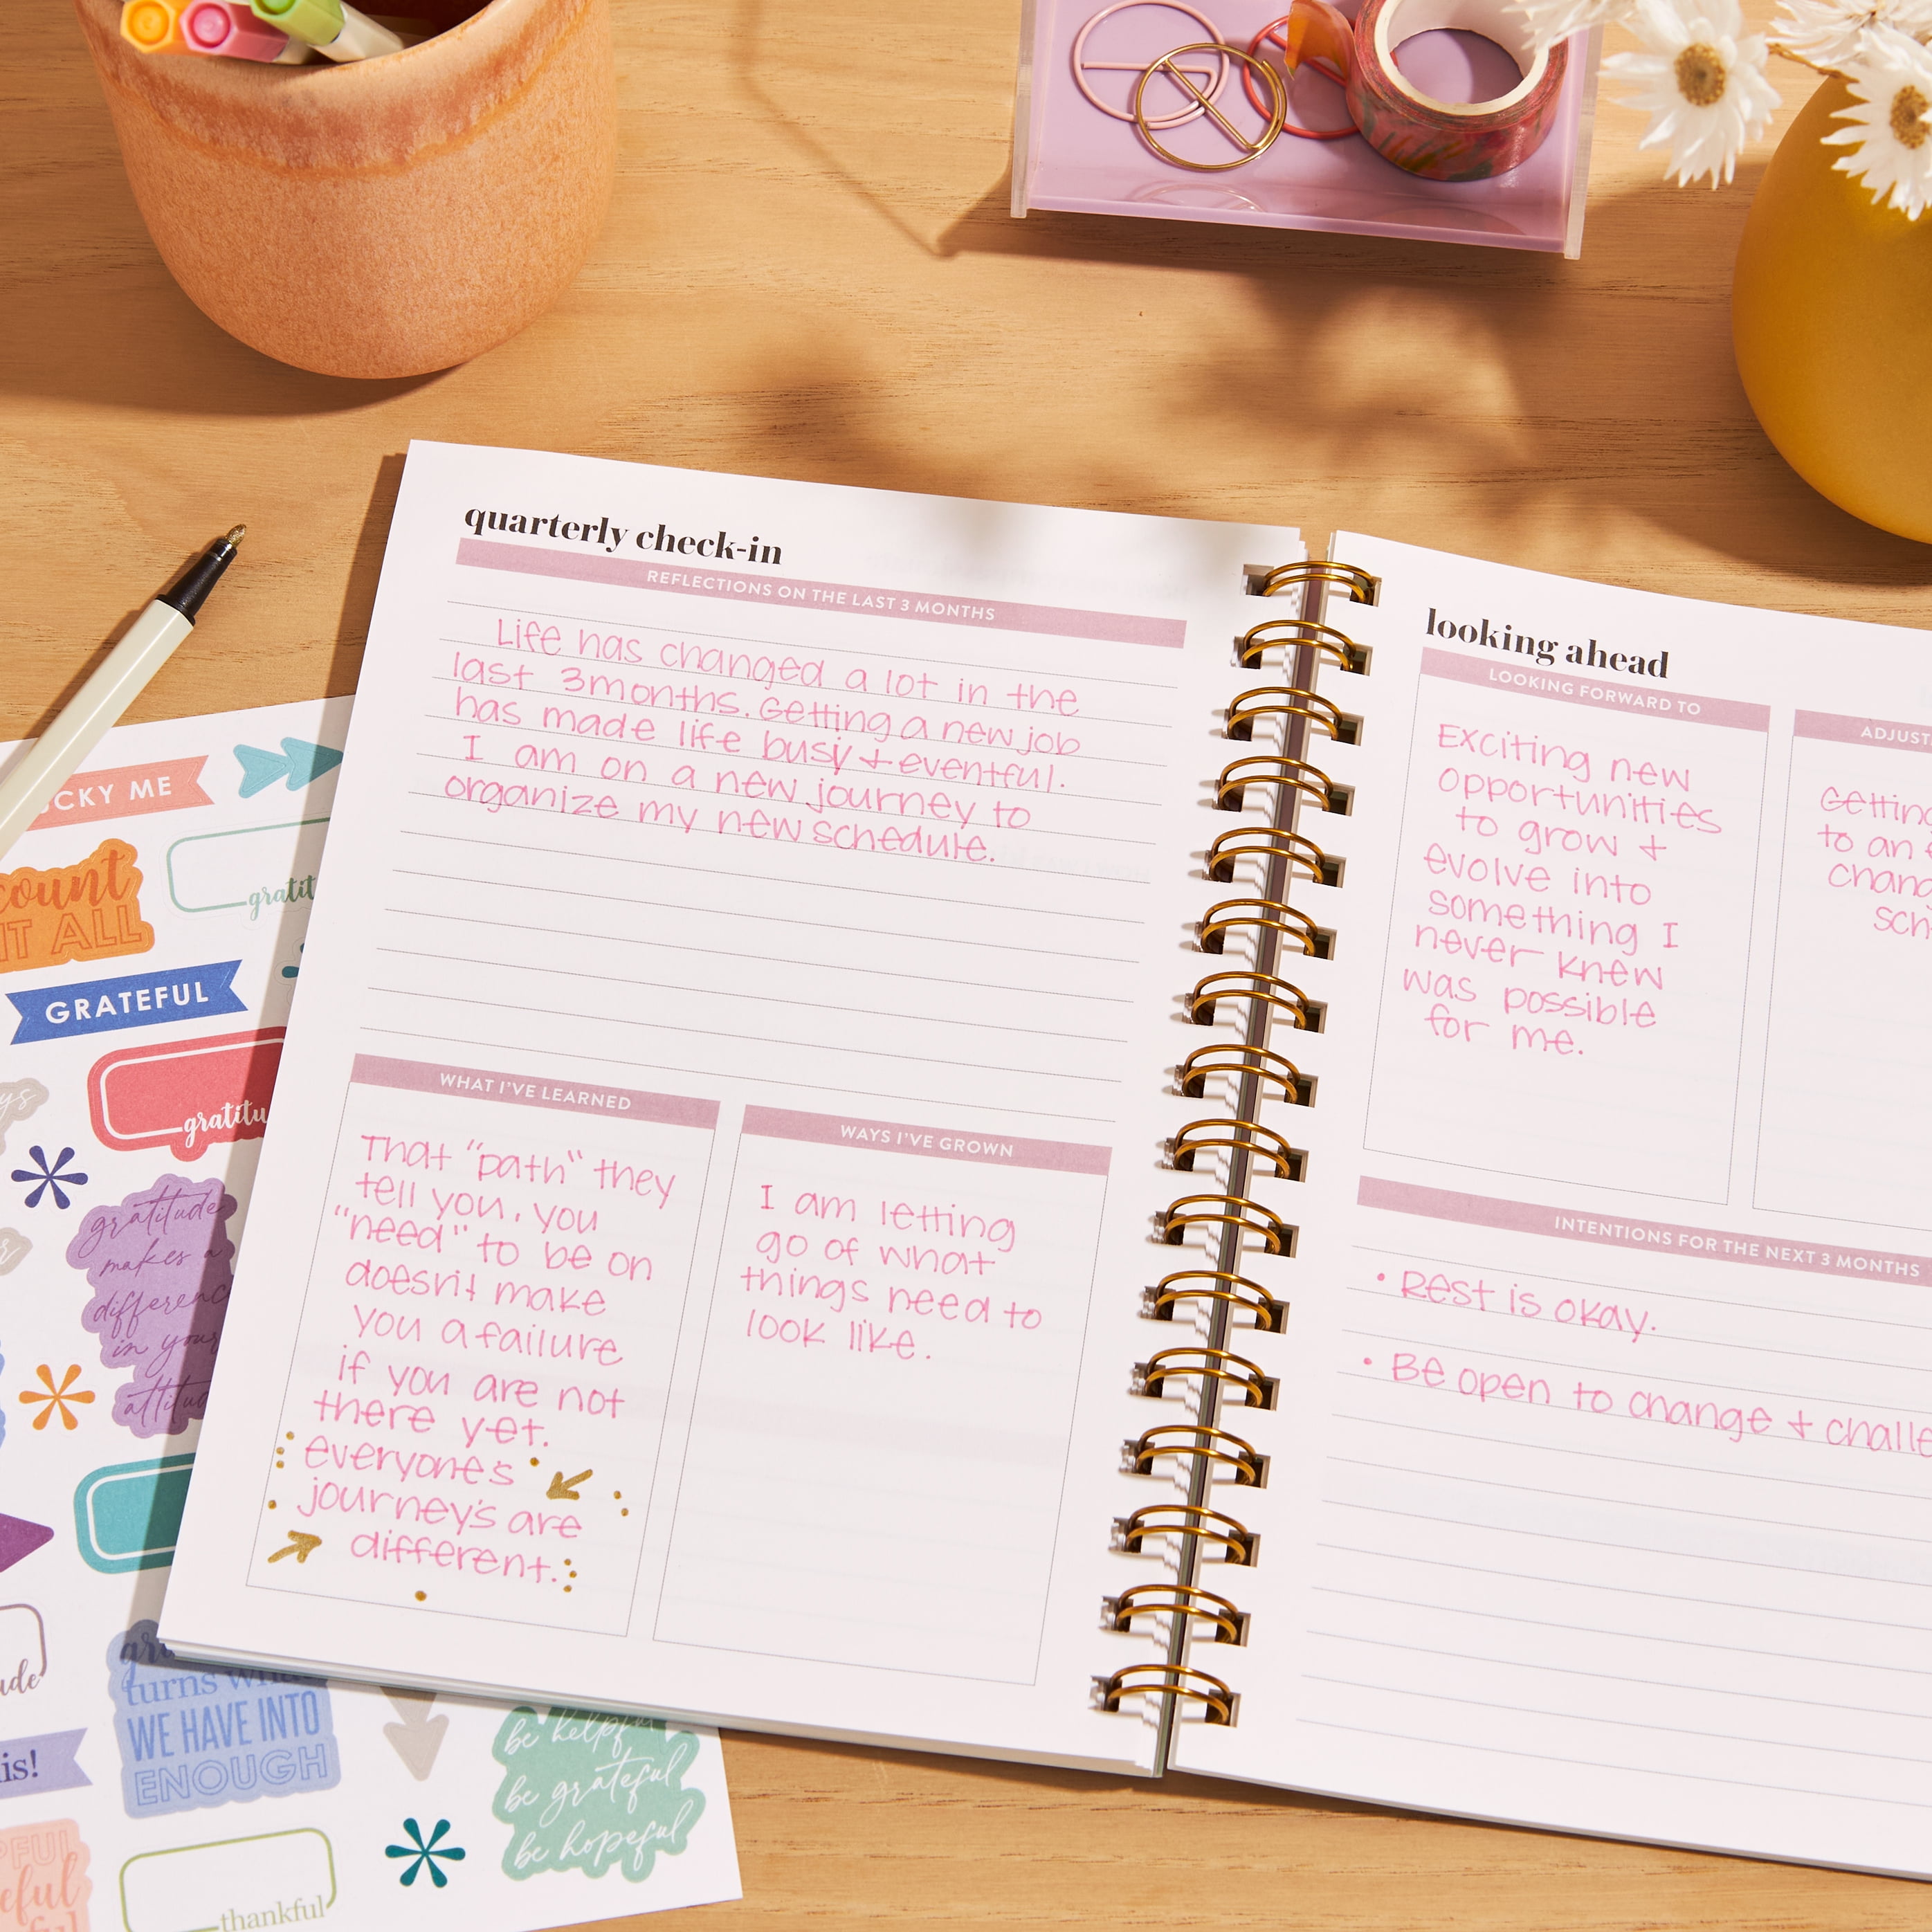 quarterly check-in
REFLECTIONS ON THE LAST 3 MONTHS
Life has changed a lot in the
last 3months. Getting a new job
has made life busy + eventful.
I am on a new journey to
organize my new schedule.
WHAT I'VE LEARNED
That "path" they
tell you, you
"need" to be on
doesn't make
you a failure
if you are not
there yet.
everyone's
journey's are
different.
WAYS I'VE GROWN
I am letting
go of what
things need to
look like.
looking ahead
LOOKING FORWARD TO
Exciting new
opportunities
to grow +
evolve into
something I
never knew
was possible
for me.
to an
INTENTIONS FOR THE NEXT 3 MONTHS
• Rest is okay.
• Be open to change +
ME
count
IT ALL
GRATEFUL
gratitude
makes a
in your
turns
WE HAVE INTO
ENOUGH
be helpful
be grateful
be hopeful
thankful